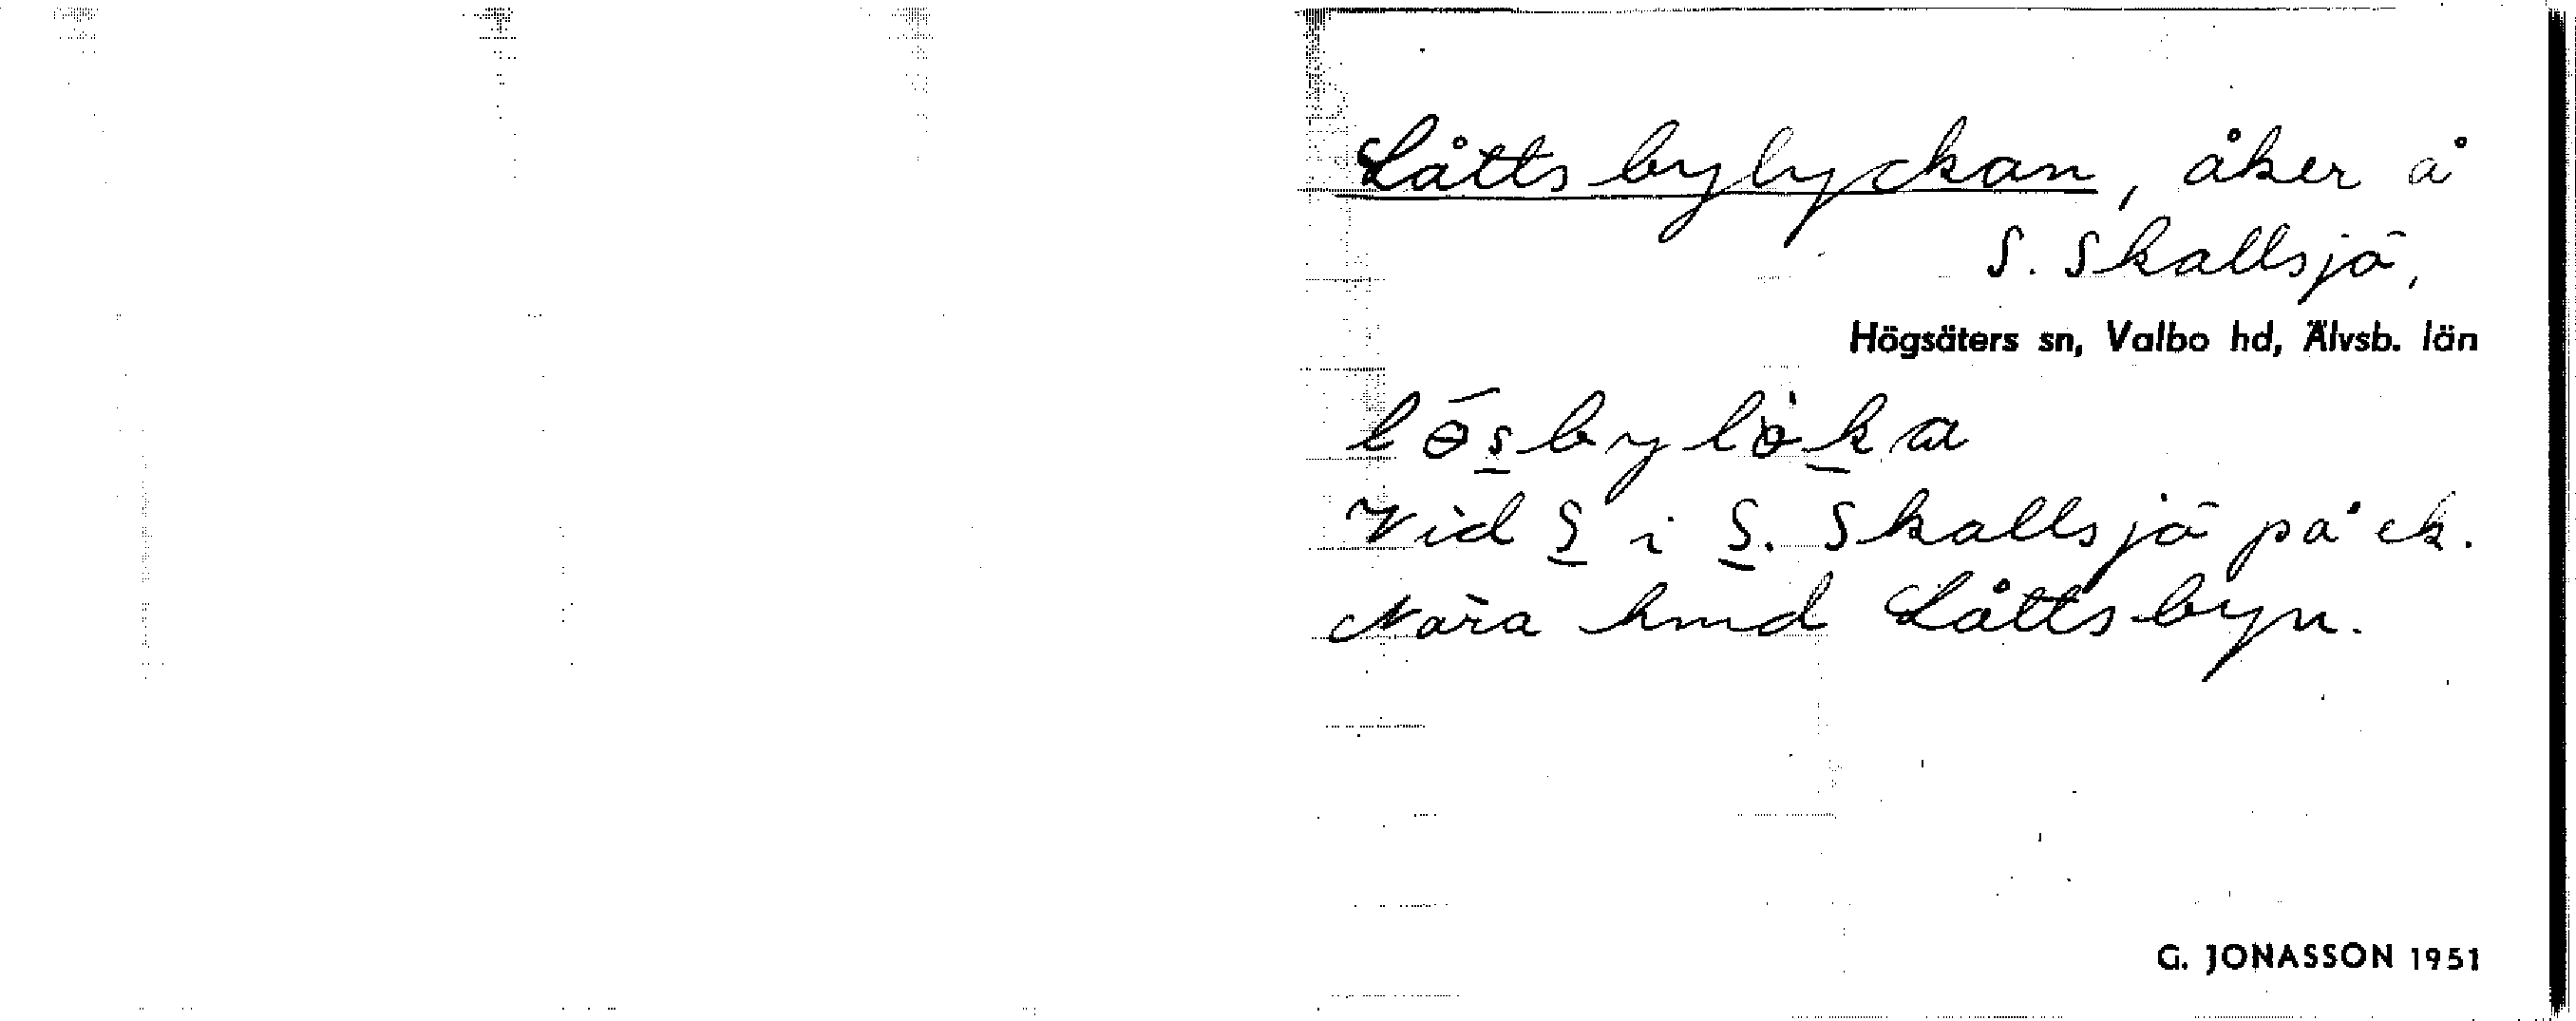 Låttsbylyckan, åker å
S. Skallsjö,
Högsäters sn, Valbo hd, Älvsb. län
lɵ́sbylɵ̀ka
Vid S i S. Skallsjö på ek.
Nära hmd Låttsbyn.
G. JONASSON 1951